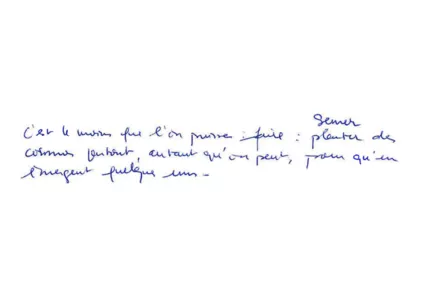 Semer
c'est le moins que l'on puisse faire : planter des
cosmos partout, autant qu'on peut, pour qu'en
émergent quelque uns -